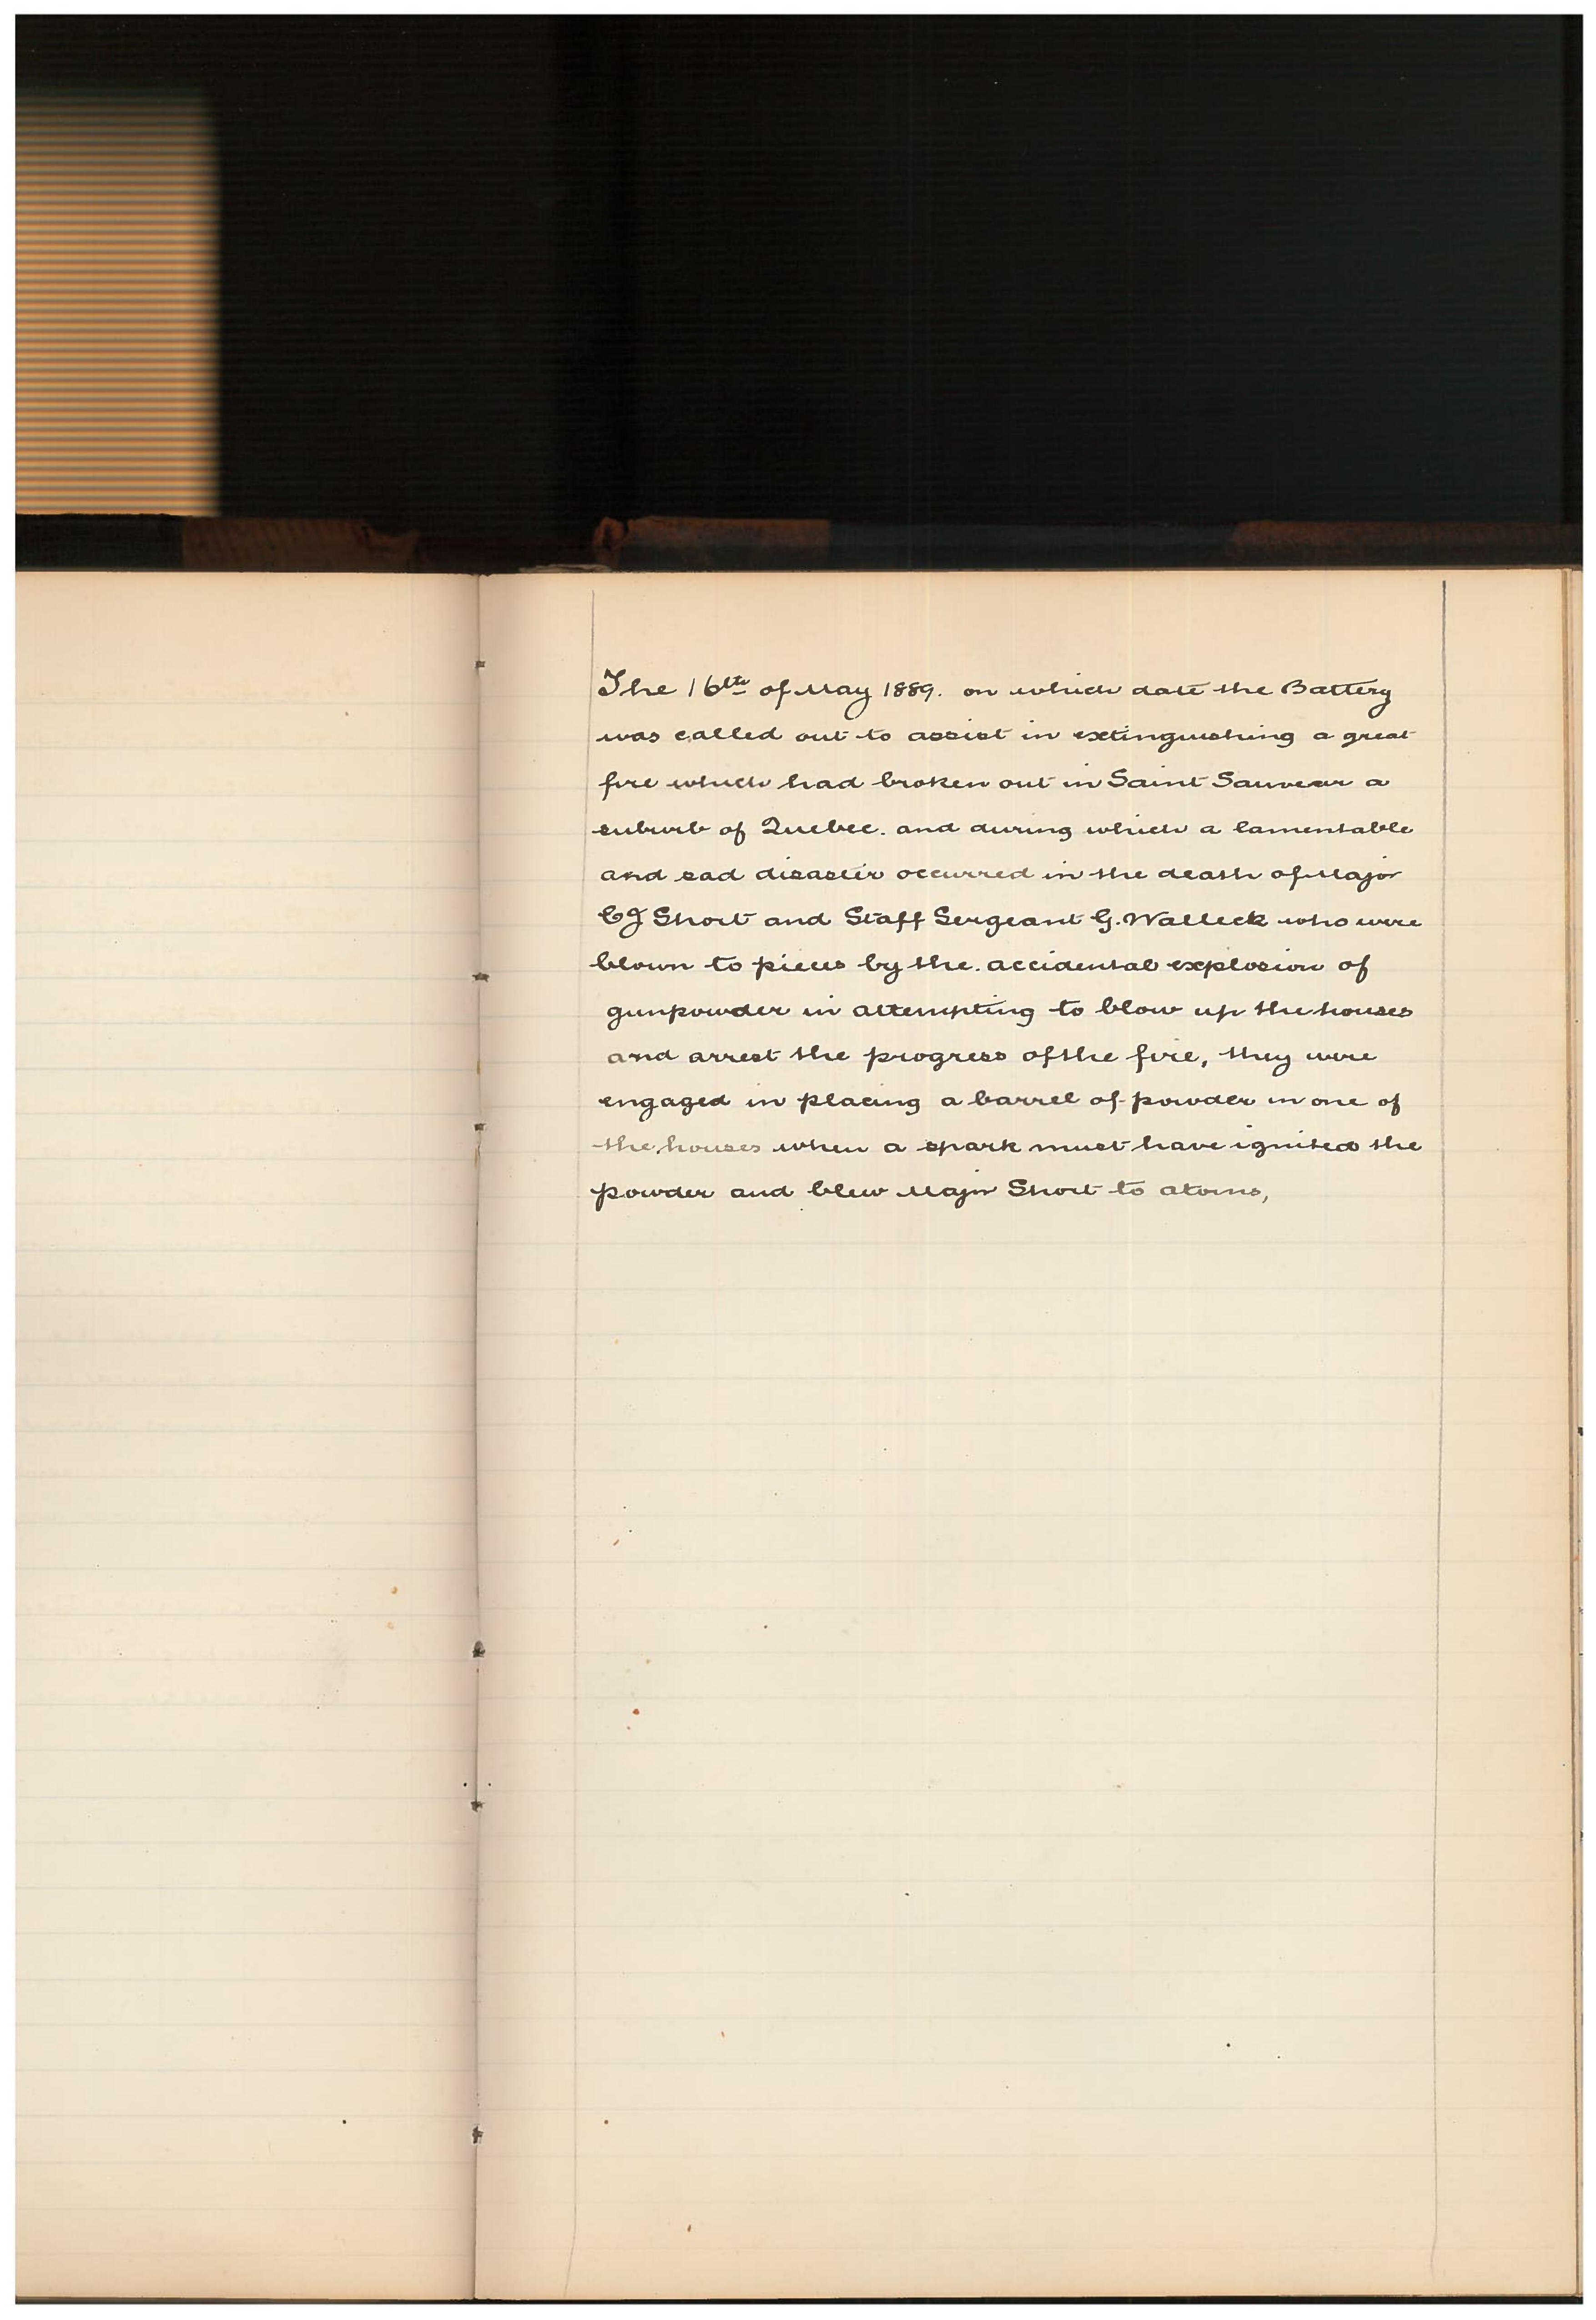 The 16th of May 1889. on which date the Battery
was called out to assist in extinguishing a great
fire which had broken out in Saint Sauveur a
suburb of Quebec. and during which a lamentable
and sad disaster occurred in the death of Major
CJ Short and Staff Sergeant G. Walleck who were
blown to pieces by the. accidental explosion of
gunpowder in attempting to blow up the houses
and arrest the progress of the fire, they were
engaged in placing a barrel of powder in one of
the houses when a spark must have ignited the
powder and blew Major Short to atoms,